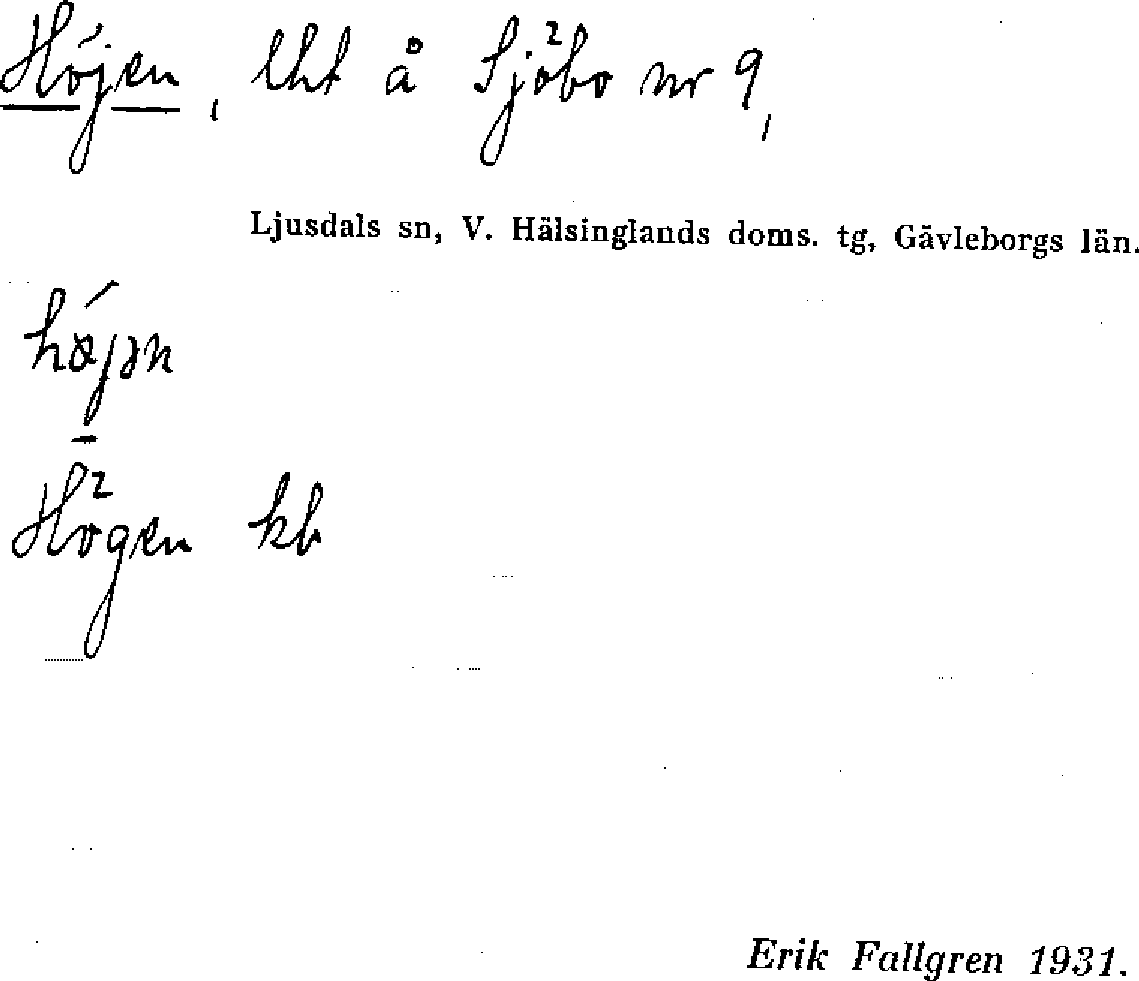 Höjen, lht å Sjöbo nr 9,
Ljusdals sn, V. Hälsinglands doms. tg, Gävleborgs län.
Högen kb
Erik Fallgren 1931.